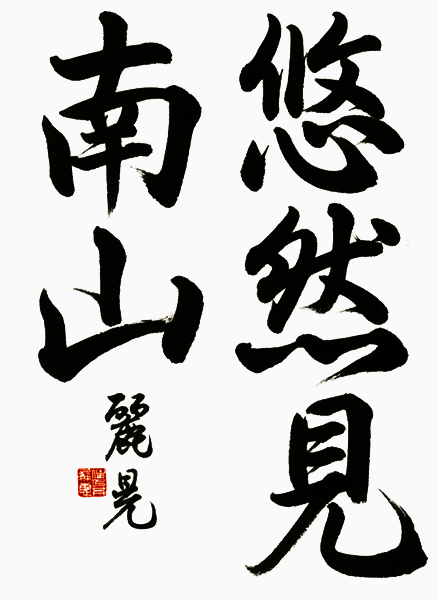 悠然見
南山
麗晃